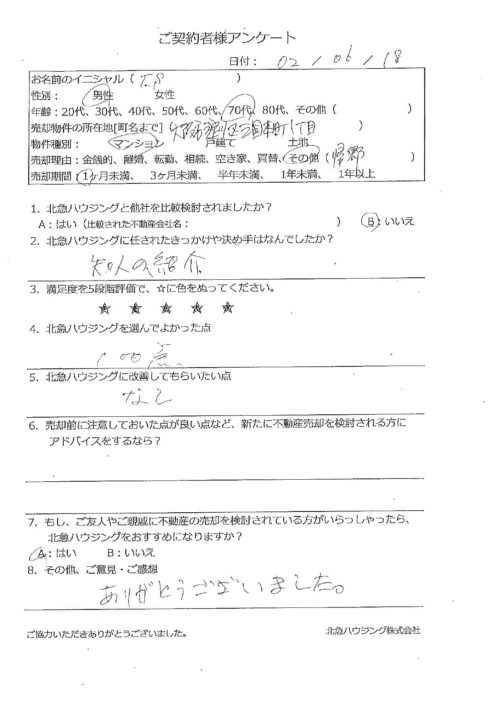 ご契約者様アンケート
日付： 02 / 06 / 18
お名前のイニシャル（ T.S ）
性別： 男性 女性
年齢：20代、30代、40代、50代、60代、70代、80代、その他（ ）
売却物件の所在地[町名まで]（大阪市淀川区三国本町1丁目 ）
物件種別： マンション 戸建て 土地
売却理由：金銭的、離婚、転勤、相続、空き家、買替、その他（帰郷 ）
売却期間：1ヶ月未満、 3ヶ月未満、 半年未満、 1年未満、 1年以上
1．北急ハウジングと他社を比較検討されましたか？
A：はい（比較された不動産会社名： ） B：いいえ
2．北急ハウジングに任されたきっかけや決め手はなんでしたか？
知人の紹介
3．満足度を5段階評価で、☆に色をぬってください。
★ ★ ★ ★ ★
4．北急ハウジングを選んでよかった点
100点
5．北急ハウジングに改善してもらいたい点
なし
6．売却前に注意しておいた点が良い点など、新たに不動産売却を検討される方に
アドバイスをするなら？
7．もし、ご友人やご親戚に不動産の売却を検討されている方がいらっしゃったら、
北急ハウジングをおすすめになりますか？
A：はい B：いいえ
8．その他、ご意見・ご感想
ありがとうございました。
ご協力いただきありがとうございました。
北急ハウジング株式会社